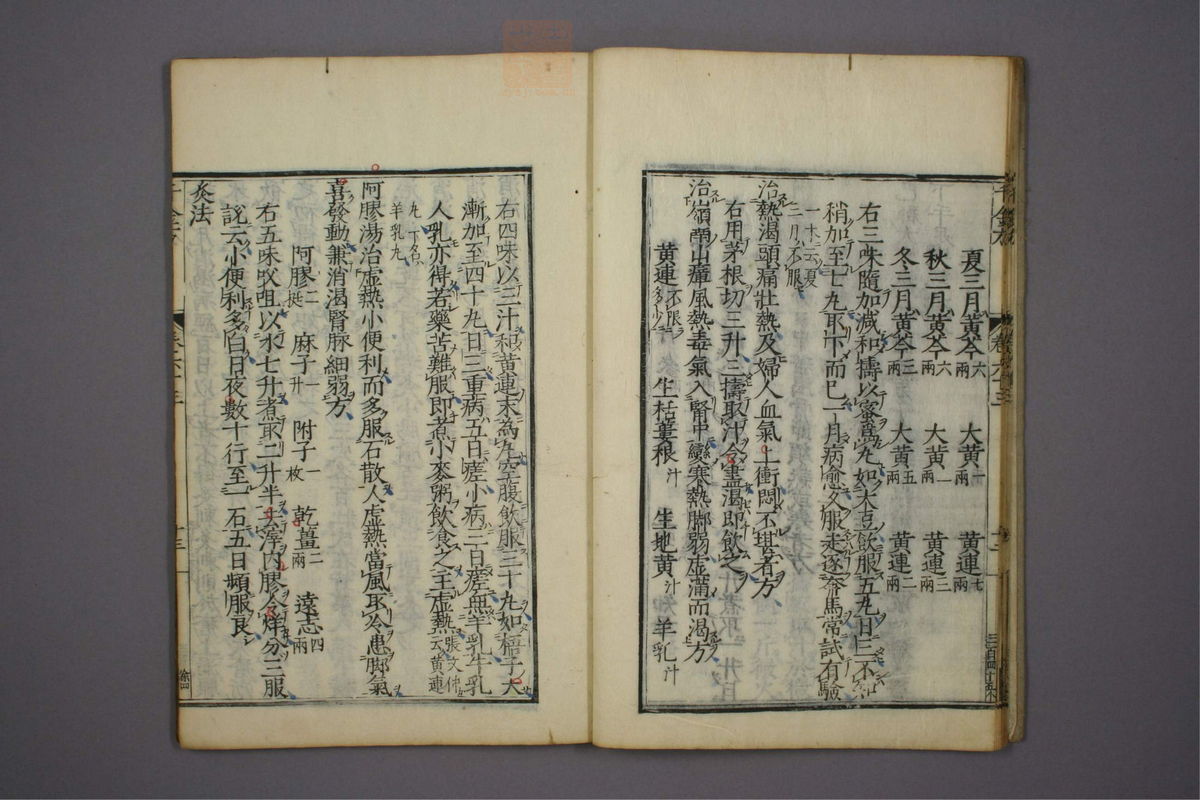 夏三月黄芩六兩 大黄一兩 黄連七兩
秋三月黄芩六兩 大黄一兩 黄連三兩
冬三月黄芩三兩 大黄五兩 黄連二兩
右三味隨加減和擣以蜜爲丸如大豆飲服五丸日三不知
稍加至七丸取下而已一月病愈久服走逐奔馬常試有驗
一本云夏三月不服
治熱渴頭痛壯熱及婦人血氣上衝悶不堪者方
右用茅根切三升三擣取汁令盡渴即飲之
治嶺南山瘴風熱毒氣入腎中變寒熱脚弱虛滿而渴方
黄連不限多少 生栝蔞根汁 生地黄汁 羊乳汁
右四味以三汁和黄連末為丸空腹飲服三十丸如梧子大
漸加至四十丸日三重病五日瘥小病三日瘥無羊乳牛乳
人乳亦得若藥苦難服即煮小麥粥飲食之主虛熱張文仲云黄連
丸一名羊乳丸
阿膠湯治虛熱小便利而多服石散人虛熱當風取冷患脚氣
喜發動兼消渴腎脉細弱方
阿膠二挺 麻子一升 附子一枚 乾薑二兩 遠志四兩
右五味㕮咀以水七升煮取二升半去滓內膠令烊分三服
說云小便利多白日夜數十行至一石五日頻服良
灸法